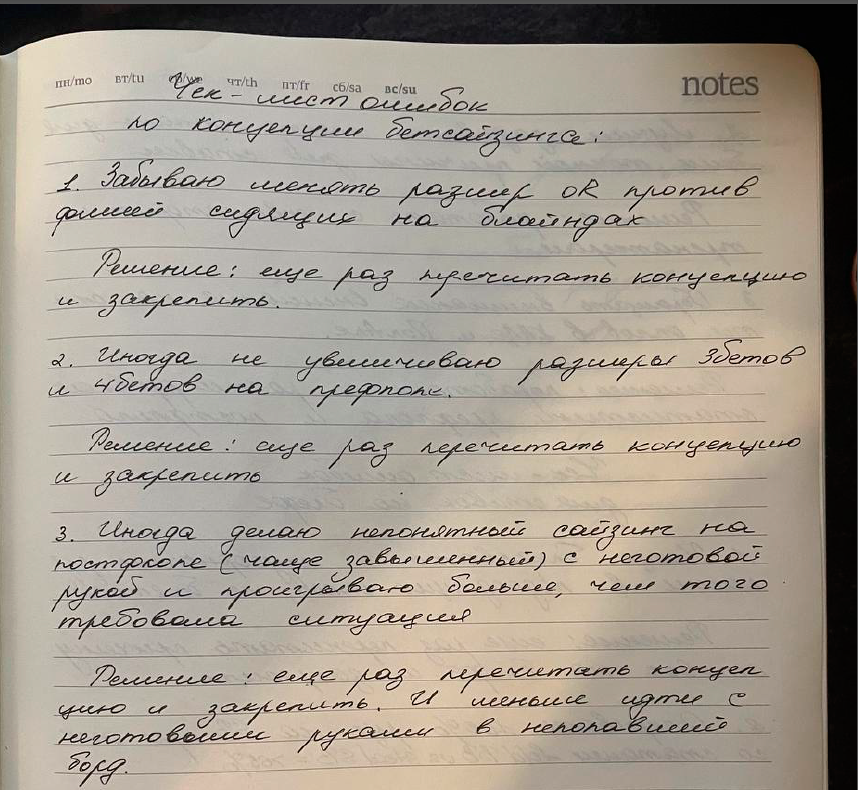 пн/mo вт/tu ср/we чт/th пт/fr сб/sa вс/su notes
Чек-лист ошибок
по концепции бетсайзинга:
1. Забываю менять размер OR против
фишей сидящих на блайндах
Решение: еще раз перечитать концепцию
и закрепить.
2. Иногда не увеличиваю размеры 3бетов
и 4бетов на префлопе.
Решение: еще раз перечитать концепцию
и закрепить
3. Иногда делаю непонятный сайзинг на
постфлопе (чаще завышенный) с неготовой
рукой и проигрываю больше, чем того
требовала ситуация
Решение: еще раз перечитать концеп
цию и закрепить. И меньше идти с
неготовыми руками в непопавший
борд.